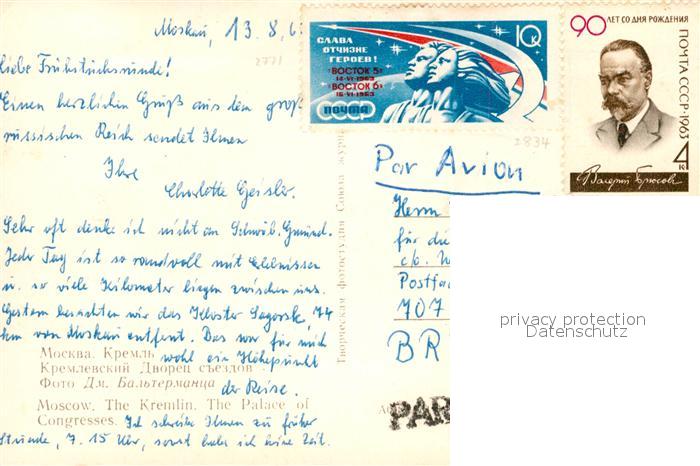 Moskau, 13.8.6
2771
liebe Frühstücksrunde!
Einen herzlichen Gruß aus dem groß
russischen Reich sendet Ihnen
Ihre
Charlotte Geisler.
Sehr oft denke ich nicht an Schwäb. Gmünd.
Jeder Tag ist so randvoll mit Erlebnissen
u. so viele Kilometer liegen zwischen uns.
Gestern besuchten wir das Kloster Sagorsk, 74
km von Moskau entfernt. Das war für mich
wohl ein Höhepunkt
der Reise.
Ich schreibe Ihnen zu früher
Stunde, 7.15 Uhr, sonst habe ich keine Zeit.
Москва. Кремль
Кремлевский Дворец съездов
Фото Дм. Бальтерманца
Moscow. The Kremlin. The Palace of
Congresses.
Творческая фотостудия Союза журн
СЛАВА
ОТЧИЗНЕ
ГЕРОЕВ!
«ВОСТОК 5»
14-VI-1963
«ВОСТОК 6»
16-VI-1963
ПОЧТА
10К
90 ЛЕТ СО ДНЯ РОЖДЕНИЯ
ПОЧТА СССР·1963
4К
Валерий Брюсов
2834
Par Avion
Herrn
für die
c/o.
Postfac
707
BR
PAR
privacy protection
Datenschutz